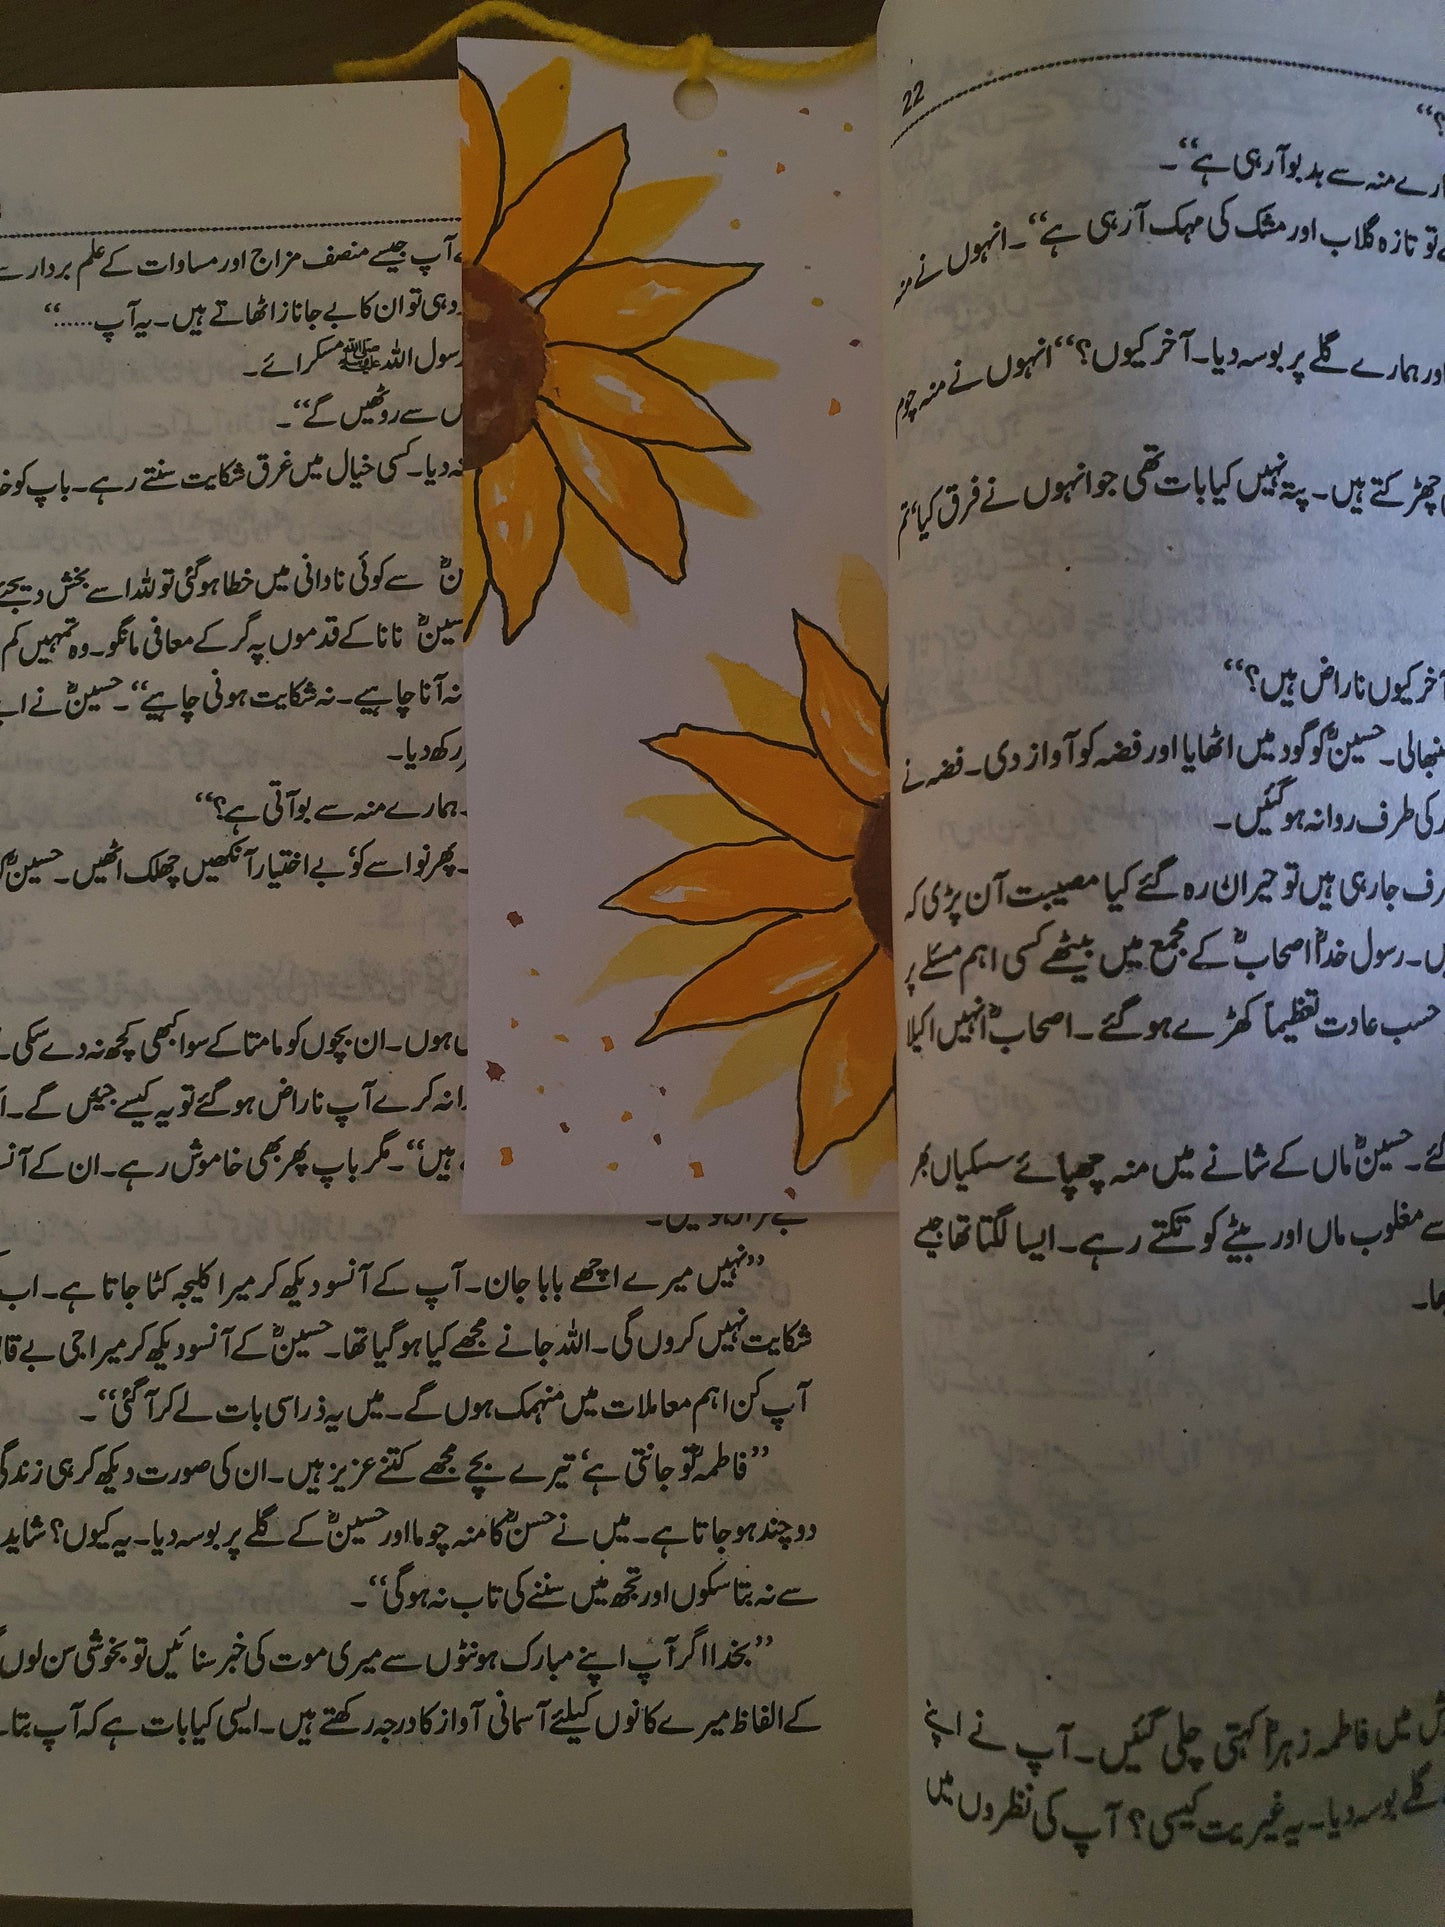 22
؟‘‘
ارے منہ سے بد بو آ رہی ہے‘‘۔
تو تازہ گلاب اور مشک کی مہک آ رہی ہے‘‘۔ انہوں نے منہ
اور ہمارے گلے پر بوسہ دیا۔ آخر کیوں؟‘‘ انہوں نے منہ چوم
چھڑکتے ہیں۔ پتہ نہیں کیا بات تھی جو انہوں نے فرق کیا‘ تم
آخر کیوں ناراض ہیں؟‘‘
نبھالی۔ حسینؓ کو گود میں اٹھایا اور فضہ کو آواز دی۔ فضہ نے
کی طرف روانہ ہو گئیں۔
رف جا رہی ہیں تو حیران رہ گئے کیا مصیبت آن پڑی کہ
رسول خداؐ اصحابؓ کے مجمع میں بیٹھے کسی اہم مسئلے پر
حسب عادت تعظیماً کھڑے ہو گئے۔ اصحابؓ انہیں اکیلا
گئے۔ حسینؓ ماں کے شانے میں منہ چھپائے سسکیاں بھر
سے مغلوب ماں اور بیٹے کو تکتے رہے۔ ایسا لگتا تھا جیسے
میں فاطمہ زہراؓ کہتی چلی گئیں۔ آپ نے اپنے
گلے بوسہ دیا۔ یہ غیریت کیسی؟ آپ کی نظروں میں
آپ جیسے منصف مزاج اور مساوات کے علم بردار سے
وہی تو ان کا بے جا ناز اٹھاتے ہیں۔ یہ آپ......‘‘
رسول اللہ ﷺ مسکرائے۔
سے روٹھیں گے‘‘۔
نہ دیا۔ کسی خیال میں غرق شکایت سنتے رہے۔ باپ کو
سے کوئی نادانی میں خطا ہو گئی تو للہ اسے بخش دیجئے
حسینؓ نانا کے قدموں پہ گر کے معافی مانگو۔ وہ تمہیں کم
نہ آنا چاہیے۔ نہ شکایت ہونی چاہیے‘‘۔ حسینؓ نے
رکھ دیا۔
ہمارے منہ سے بو آتی ہے؟‘‘
پھر نواسے کو‘ بے اختیار آنکھیں چھلک اٹھیں۔ حسینؓ
ہوں۔ ان بچوں کو مامتا کے سوا کبھی کچھ نہ دے سکی۔
نہ کرے آپ ناراض ہو گئے تو یہ کیسے جیئیں گے۔
ہیں‘‘۔ مگر باپ پھر بھی خاموش رہے۔ ان کے
’’نہیں میرے اچھے بابا جان۔ آپ کے آنسو دیکھ کر میرا کلیجہ کٹا جاتا ہے۔ اب
شکایت نہیں کروں گی۔ اللہ جانے مجھے کیا ہو گیا تھا۔ حسینؓ کے آنسو دیکھ کر میرا جی بے
آپ کن اہم معاملات میں منہمک ہوں گے۔ میں یہ ذرا سی بات لے کر آ گئی‘‘۔
’’فاطمہؓ تو جانتی ہے‘ تیرے بچے مجھے کتنے عزیز ہیں۔ ان کی صورت دیکھ کر ہی
دو چند ہو جاتا ہے۔ میں نے حسنؓ کا منہ چوما اور حسینؓ کے گلے پر بوسہ دیا۔ یہ کیوں؟ شاید
سے نہ بتا سکوں اور تجھ میں سننے کی تاب نہ ہو گی‘‘۔
’’بخدا اگر آپ اپنے مبارک ہونٹوں سے میری موت کی خبر سنائیں تو بخوشی سن لوں
کے الفاظ میرے کانوں کیلئے آسمانی آواز کا درجہ رکھتے ہیں۔ ایسی کیا بات ہے کہ آپ